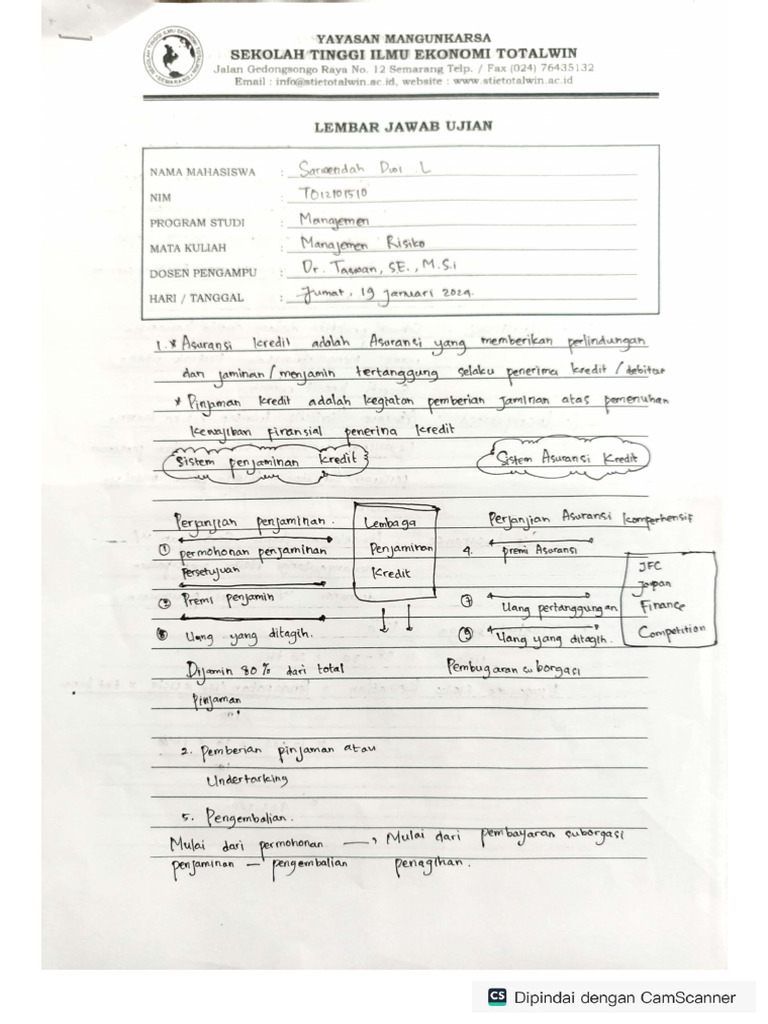 YAYASAN MANGUNKARSA
SEKOLAH TINGGI ILMU EKONOMI TOTALWIN
Jalan Gedongsongo Raya No. 12 Semarang Telp. / Fax (024) 76435132
Email : info@stietotalwin.ac.id, website : www.stietotalwin.ac.id
LEMBAR JAWAB UJIAN
NAMA MAHASISWA : Sarwendah Dwi L
NIM :
PROGRAM STUDI : Manajemen
MATA KULIAH : Manajemen Risiko
DOSEN PENGAMPU : Dr. Taswan, SE., M.Si
HARI / TANGGAL : Jumat, 19 Januari 2024.
1. * Asuransi kredit adalah Asuransi yang memberikan perlindungan
dan jaminan / menjamin tertanggung selaku penerima kredit / debitur
* Pinjaman kredit adalah kegiatan pemberian jaminan atas pemenuhan
kewajiban finansial penerima kredit
Sistem penjaminan kredit
Sistem Asuransi Kredit
Perjanjian penjaminan.
① permohonan penjaminan
Persetujuan
③ Premi penjamin
⑧ Uang yang ditagih.
Dijamin 80% dari total
Pinjaman
Lembaga
Penjaminan
Kredit
Perjanjian Asuransi komperhensif
4. premi Asuransi
⑦ Uang pertanggungan
⑨ Uang yang ditagih.
Pembugaran suborgasi
JFC
Japan
Finance
Competition
2. Pemberian pinjaman atau
Undertarking
5. Pengembalian.
Mulai dari permohonan → Mulai dari pembayaran suborgasi
penjaminan — pengembalian penagihan.
CS Dipindai dengan CamScanner